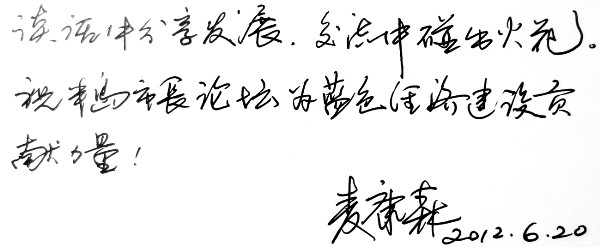 谈话中分享发展，交流中碰出火花。
祝半岛市长论坛为蓝色经济建设贡
献力量！
麦康森 2012.6.20